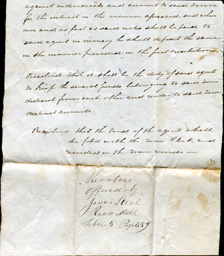 against individuals and account to said town
for the interest in the manner aforesaid and when
and as fast as said notes shall be paid to
said agent in money he shall deposit the same
in the manner provided in the first resolution
Resolved that it shall be the duty of said agent
to keep the several funds belonging to
distinct from each other and render to said town
distinct accounts
Resolved that the bond of the agent shall
be filed with the town Clerk and
recorded in the town records
Resolves
offered by
Recd
Page 659